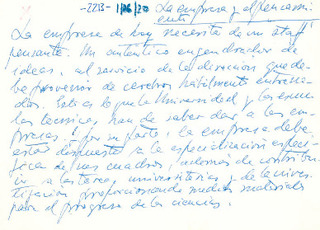 -2213- 1/06/70 La empresa y el pensami
ento
La empresa de hoy necesita de un staff
pensante. Un auténtico engendrador de
ideas, al servicio de la dirección que de-
be provenir de cerebros hábilmente entrena-
dos. Esto es lo que la Universidad y las escue
las técnicas, han de saber dar a las em-
presas. Y por su parte, la empresa debe
estar dispuesta a la especialización especí-
fica de sus cuadros, además de contribu-
ir a las tareas universitarias y de la inves-
tigación proporcionando medios materiales
para el progreso de las ciencias.